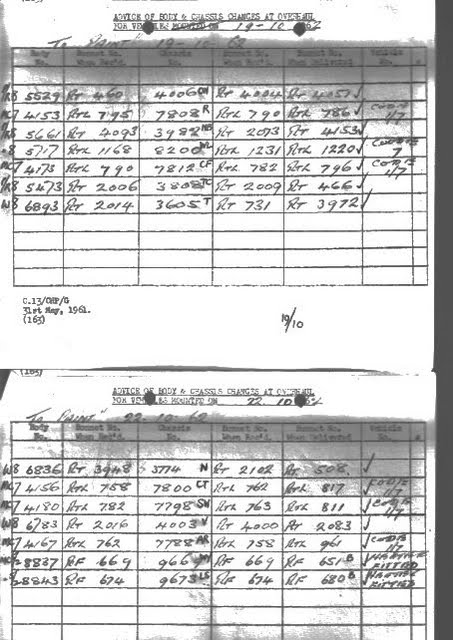 ADVICE OF BODY & CHASSIS CHANGES AT OVERHAUL
FOR VEHICLES MOUNTED ON 19-10-62
"To Paint" 19-10-62
Body No. Bonnet No. When Rec'd. Chassis No. Bonnet No. When Delivered Vehicle No.
5529 RT 460 4006 RT 4004 RT 4057 ✓
4153 RTL 795 7808 R RTL 790 RTL 786 ✓ CODE 1/7
5661 RT 4093 3982 RT 2073 RT 4153 ✓
5717 RTL 1168 8200 RTL 1231 RTL 1220 ✓ CODE 7
4173 RTL 790 7812 CF RTL 782 RTL 796 ✓ CODE 1/7
5473 RT 2006 3808 TC RT 2009 RT 466 ✓
W8 6893 RT 2014 3605 T RT 731 RT 3972 ✓
C.13/CHP/G
31st May, 1961.
(163)
19/10
(163)
ADVICE OF BODY & CHASSIS CHANGES AT OVERHAUL
FOR VEHICLES MOUNTED ON 22 10 62
"To Paint" 22-10-62
Body No. Bonnet No. When Rec'd. Chassis No. Bonnet No. When Delivered Vehicle No.
W8 6836 RT 3948 3774 N RT 2102 RT 508 ✓
4156 RTL 758 7800 CT RTL 762 RTL 817 ✓ CODE 1/7
4180 RTL 782 7798 SW RTL 763 RTL 811 ✓ CODE 1/7
W8 6783 RT 2016 4003 V RT 4000 RT 2083 ✓
4167 RTL 762 7788 AR RTL 758 RTL 961 ✓ CODE 1/7
8837 RF 669 966 RF 669 RF 651 B FITTED
8843 RF 674 9673 LS RF 674 RF 680 B FITTED